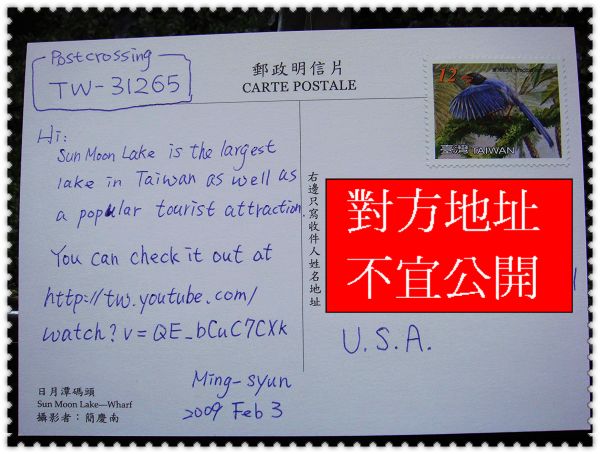 Postcrossing
TW-31265
郵政明信片
CARTE POSTALE
12
臺灣 TAIWAN
Hi:
Sun Moon Lake is the largest
lake in Taiwan as well as
a popular tourist attraction.
You can check it out at
http://tw.youtube.com/
watch?v=QE_bCuC7CXk
Ming-syun
2009 Feb 3
日月潭碼頭
Sun Moon Lake—Wharf
攝影者：簡慶南
右邊只寫收件人姓名地址
對方地址
不宜公開
U.S.A.